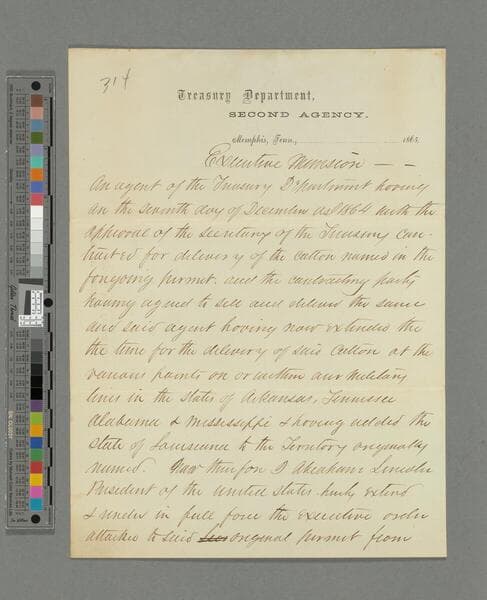 314
Treasury Department,
SECOND AGENCY.
Memphis, Tenn., 1865.
Executive Mansion — —
An agent of the Treasury Department having
on the seventh day of December 1864 with the
approval of the secretary of the Treasury con-
tracted for delivery of the cotton named in the
foregoing permit. and the contracting party
having agreed to sell and deliver the same
and said agent having now extended the
the time for the delivery of said Cotton at the
various points on or within our Military
lines in the states of Arkansas, Tennessee
Alabama & Mississippi & having added the
State of Louisiana to the Territory originally
named. Now therefore I Abraham Lincoln
President of the United States hereby extend
& render in full force the executive order
attached to said original permit from